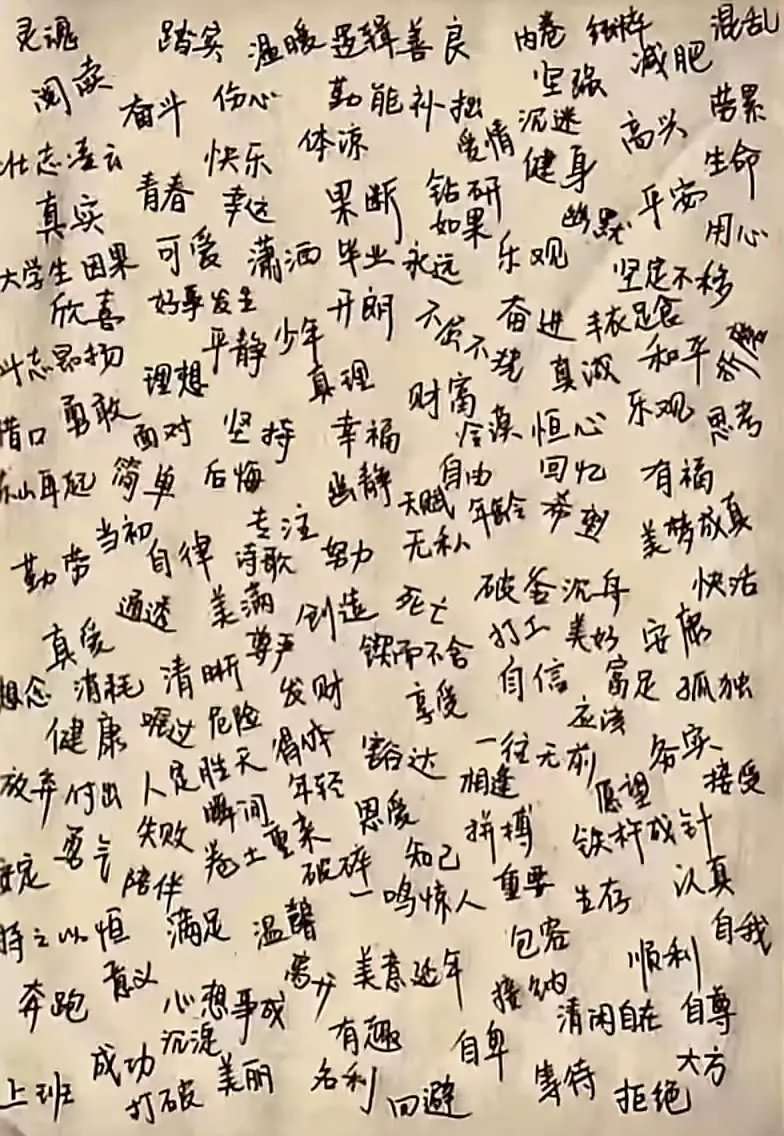 灵魂 踏实 温暖 逻辑 善良 内卷 纯粹 混乱
阅读 奋斗 伤心 勤能补拙 坚强 减肥
壮志凌云 快乐 体谅 爱情 沉迷 高兴 劳累
真实 青春 幸运 果断 钻研 健身 生命
如果 幽默 平安 用心
大学生 因果 可爱 潇洒 毕业 永远 乐观 坚定不移
欣喜 好事发生 开朗 不屈不挠 奋进 丰衣足食
斗志昂扬 理想 平静 少年 真理 财富 真诚 和平
借口 勇敢 面对 坚持 幸福 冷漠 恒心 乐观 思考
东山再起 简单 后悔 幽静 自由 回忆 有福
勤劳 当初 自律 专注 天赋 年龄 美梦成真
诗歌 努力 无私
真爱 通透 美满 创造 死亡 破釜沉舟 快活
尊严 锲而不舍 打工 美好 安康
想念 消耗 清晰 发财 享受 自信 富足 孤独
健康 嘱过 危险 得体 豁达 一往无前 应该 务实
放弃 付出 人定胜天 年轻 相逢 愿望 接受
勇气 失败 瞬间 卷土重来 恩爱 拼搏 铁杵成针
安定 陪伴 破碎 知己 一鸣惊人 重要 生存 认真
持之以恒 满足 温馨 包容 自我
奔跑 意义 心想事成 离开 美意延年 接纳 顺利
沉淀 有趣 清闲自在 自尊
上班 成功 打破 美丽 名利 回避 自卑 等待 拒绝 大方